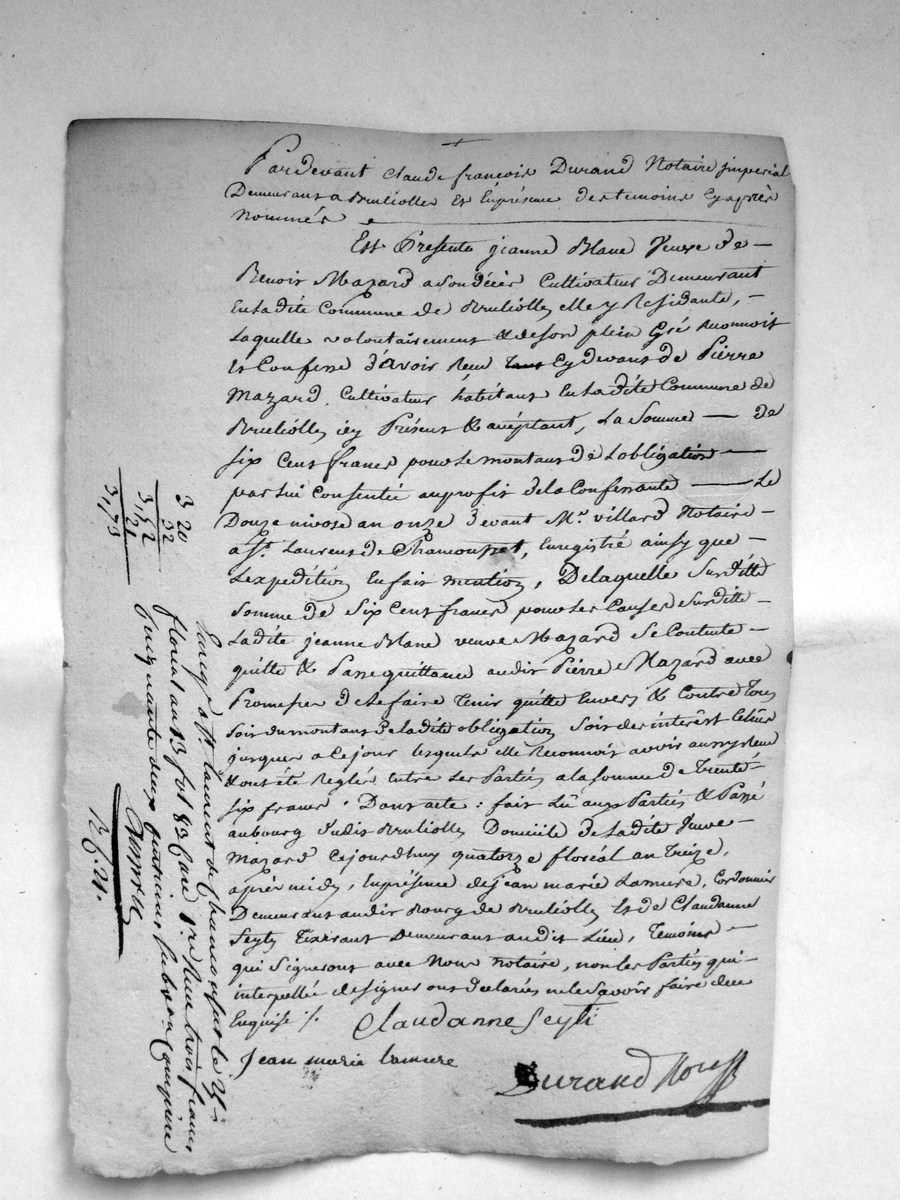 Pardevant Claude françois Durand Notaire jmperial
Demeurant a Brulliolles Et Enpresence des temoins Cy après
Nommés
Est Presente jeanne Blanc Veuve de
Benoit Mazard a son décès Cultivateur Demeurant
En ladite Commune de Brulliolles elle y Residante,
Laquelle volontairement & de son plein Gré Reconnoit
Et Confesse d'avoir Reçu Cydevant de Pierre
Mazard Cultivateur habitant En ladite Commune de
Brulliolles icy Présent & acceptant, La Somme de
Six Cent francs pour le montant de L'obligation
par lui Consentie au profit de la Confessante Le
Douze nivose an onze devant Mr. Villard Notaire
a St. Laurent de Chamousset, Enregistré ainsy que
L'expedition En fait mention, De laquelle Surditte
Somme de Six Cent francs pour les Causes Surditte
Ladite jeanne Blanc veuve Mazard Se Contente
quitte & Passe quittance audit Pierre Mazard avec
Promesse de le faire tenir quitte Envers & Contre tous
Soit du montant de ladite obligation Soit des intérêt
jusques a ce jour lesquels elle Reconnoit avoir aussy Reçu
& ont été Reglés Entre Les Parties a la somme de Trente
Six francs. Dont acte : fait Lû aux Parties & Passé
au bourg dudit Brulliolles Domicile de Ladite Veuve
Mazard Cejourdhuy quatorze floréal an Treize,
après midy, En présence de jean marie Lamure, Cordonnier
Demeurant audit Bourg de Brulliolles Et de Claudanne
Seyty Tixerant Demeurant audit Lieu, Temoins
qui Signeront avec Nous Notaire, non les Parties qui
interpellée de signer ont declarées ne le Savoir faire de ce
Enquise ./.
Claudanne Seyti
Jean marie lamure
Durand Nore
3 20
32
3,52
21
3,73
Enreg. a St. laurent de chamousset le 25
floreal an 13 fol 83 Case 1re Reçu trois francs
Cinquante deux centimes subvention comprise
R. f. 21.